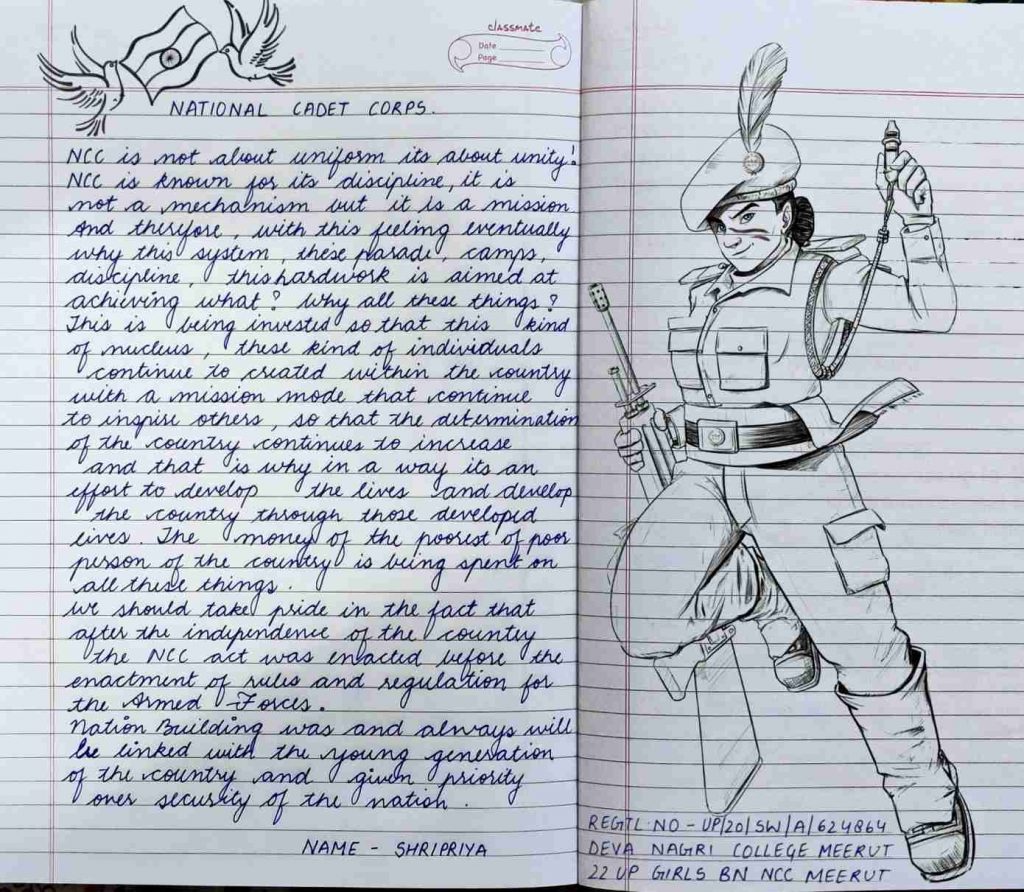 classmate
Date
Page
NATIONAL CADET CORPS.
NCC is not about uniform its about unity!
NCC is known for its discipline, it is
not a mechanism but it is a mission
And therefore, with this feeling eventually
why this system, these parade, camps,
discipline, this hardwork is aimed at
achieving what? Why all these things?
This is being invested so that this kind
of nucleus, these kind of individuals
continue to created within the country
with a mission mode that continue
to inspire others, so that the determination
of the country continues to increase
and that is why in a way its an
effort to develop the lives and develop
the country through those developed
lives. The money of the poorest of poor
person of the country is being spent on
all these things.
We should take pride in the fact that
after the independence of the country
the NCC act was enacted before the
enactment of rules and regulation for
the Armed Forces.
Nation Building was and always will
be linked with the young generation
of the country and given priority
over security of the nation.
NAME - SHRIPRIYA
REGTL NO - UP/20/SW/A/624864
DEVA NAGRI COLLEGE MEERUT
22 UP GIRLS BN NCC MEERUT